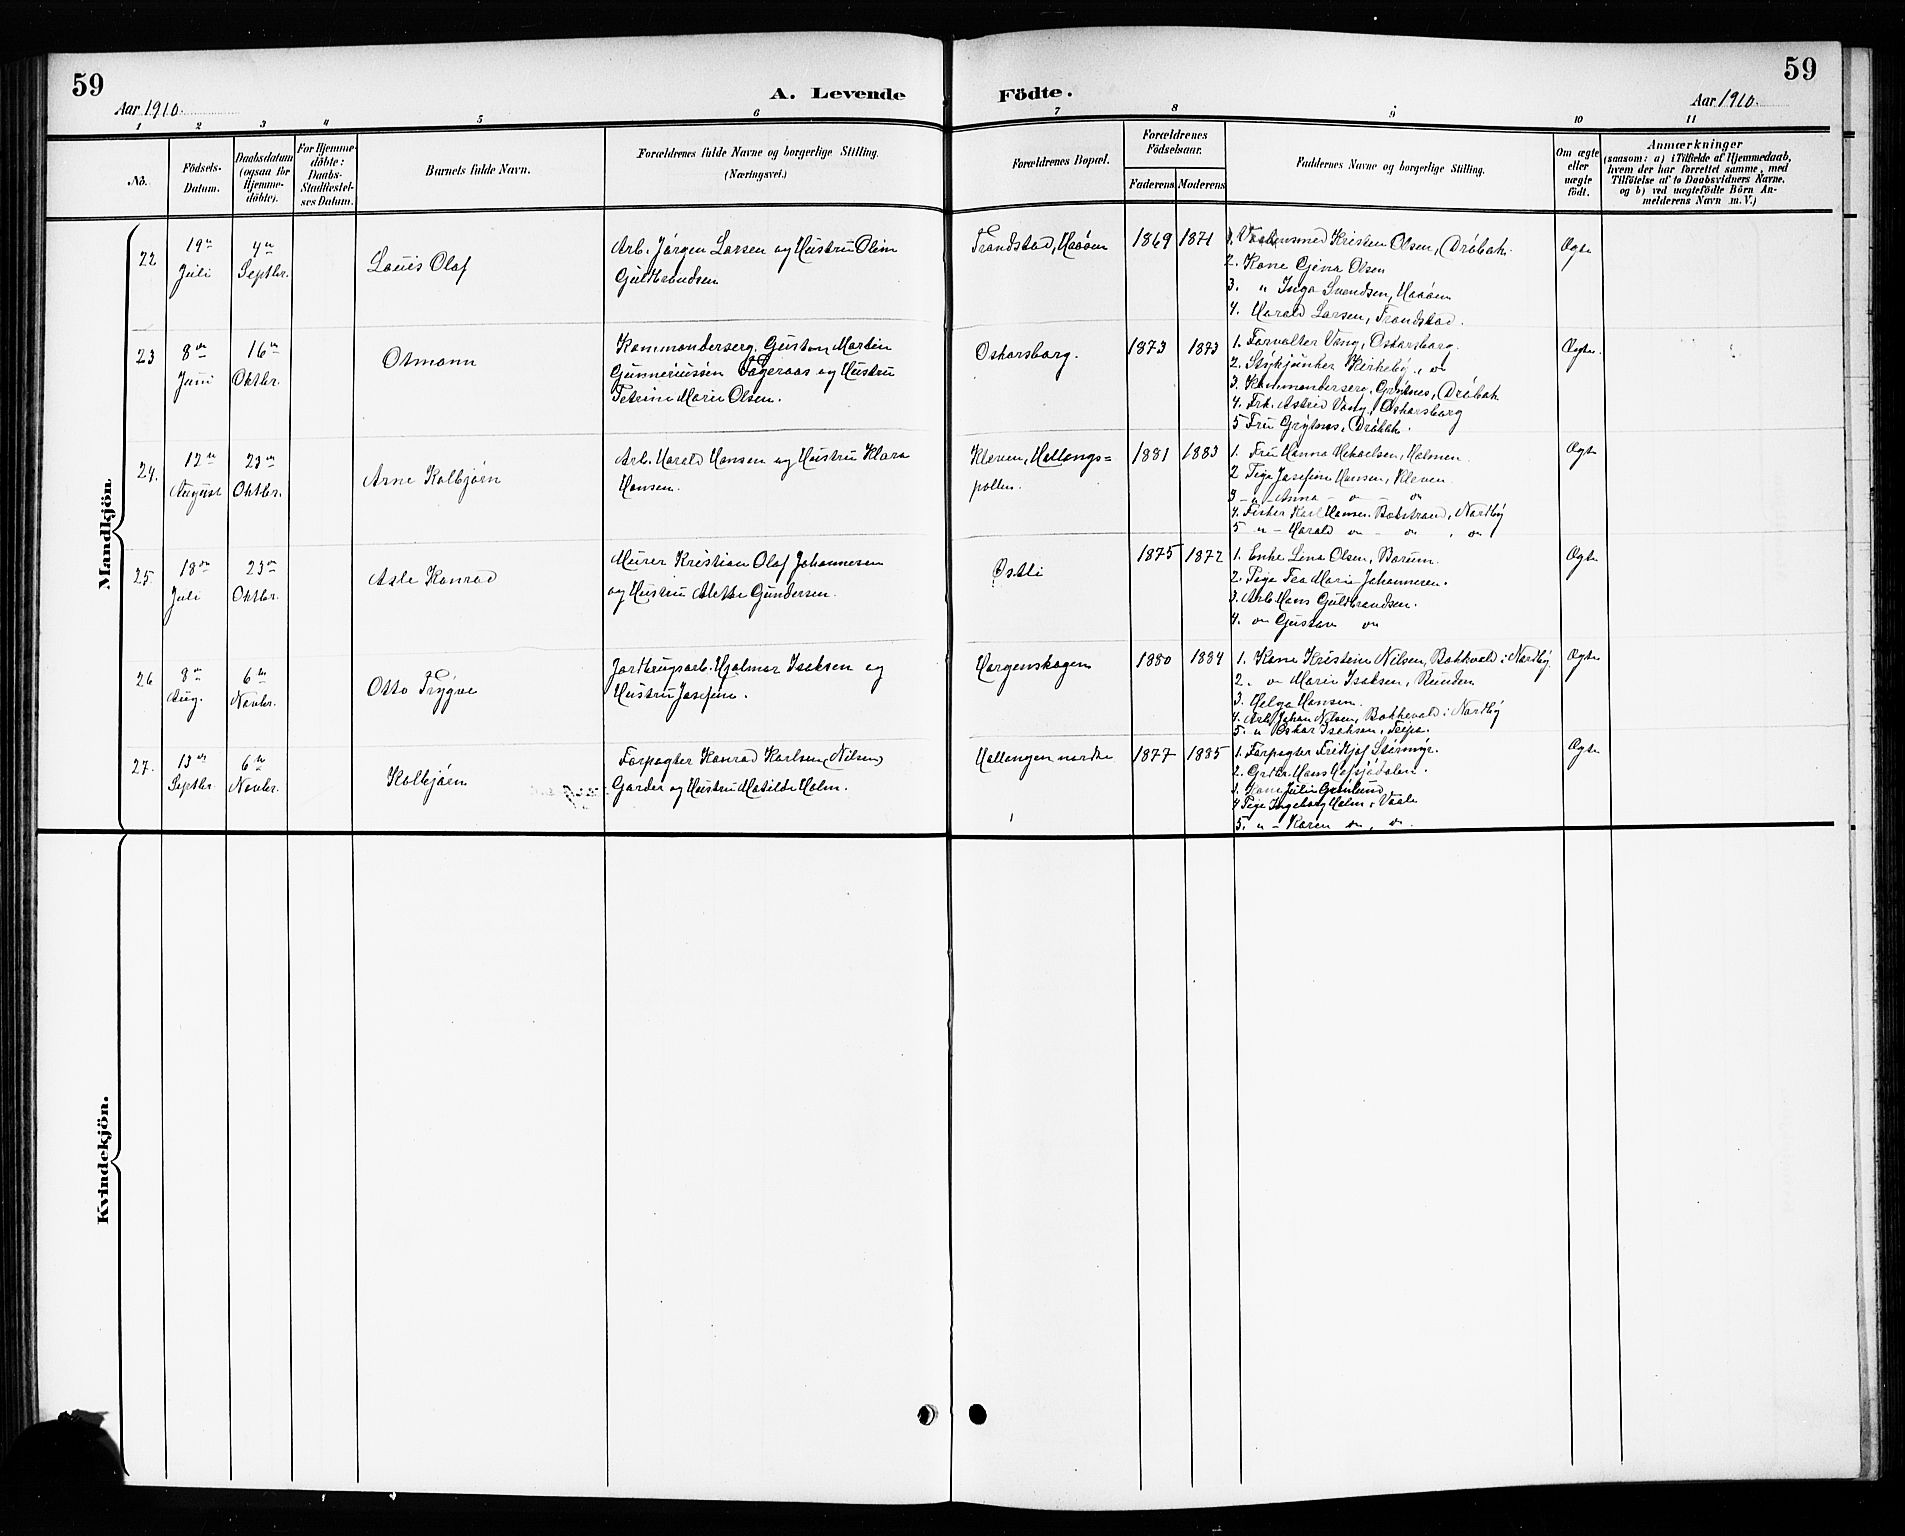 59
Aar 1910.
A. Levende Födte.
Aar 1910.
59
1 2 3 4 5 6 7 8 9 10 11
No.
Födsels-
Datum.
Daabsdatum
(ogsaa for
Hjemme-
döbte).
For Hjemme-
döbte:
Daabs-
Stadfæstel-
ses Datum.
Barnets fulde Navn.
Forældrenes fulde Navne og borgerlige Stilling.
(Næringsvei.)
Forældrenes Bopæl.
Forældrenes
Födselsaar.
Faderens Moderens
Faddernes Navne og borgerlige Stilling.
Om ægte
eller
uægte
födt.
Anmærkninger
(saasom: a) i Tilfælde af Hjemmedaab,
hvem der har forrettet samme, med
Tilföielse af to Daabsvidners Navne,
og b) ved uægtefödte Börn An-
melderens Navn m. V.)
Mandkjön
22
19de
Juli
4de
Septbr.
Louis Olaf
Arb. Jørgen Larsen og Hustru Oline
Guldbrandsen
Trondstad, Haaøen
1869 1871
1. Kristen Olsen, Drøbak.
2. Kone Gjina Olsen
3. " Inga Svendsen, Haaøen
4. Harald Larsen, Trondstad.
Ægte
23
8de
Juni
16de
Oktbr.
Otmann
Kommandersersg. Gustav Martin
Gunneriussen Fageraas og Hustru
Petrine Marie Olsen.
Oskarsborg.
1873 1873
1. Forvalter Vang, Oskarsborg.
2. Stykjunker Kirkeby, do
3. Kommandersersg. Grytnes, Drøbak
4. Frk. Astrid Vang, Oskarsborg
5 Fru Grytnes, Drøbak.
Ægte.
24.
12te
August
23de
Oktbr.
Arne Kolbjørn
Arb. Harald Hansen og Hustru Klara
Hansen.
Kleven, Hallangs=
pollen.
1881 1883
1. Fru Hanna Mikaelsen, Holmen.
2 Pige Josefine Hansen, Kleven.
3 - " - Anna - do - do
4. Fisker Karl Hansen. Bobstrand, Nordby
5 " - Harald do - do, do
Ægte
25.
18de
Juli
23de
Oktbr.
Asle Konrad
Murer Kristian Olaf Johannesen
og Hustru Alette Gundersen.
Østli
1875 1872
1. Enke Lena Olsen, Bærum.
2. Pige Tea Marie Johannesen.
3. Arb. Hans Guldbrandsen.
4. do Gustav do
Ægte
26
8de
Aug.
6te
Novbr.
Otto Trygve
Jordbrugsarb. Hjalmar Isaksen og
Hustru Josefine.
Horgenskogen
1880 1884
1. Kone Kristine Nilsen, Bakkevold i Nordby.
2. do Marie Isaksen, Bunden
3. Helga Hansen.
4. Arb. Johan Nilsen, Bakkevold i Nordby
5. " Oskar Isaksen,
Ægte
27.
13de
Septbr.
6te
Novbr.
Kolbjørn
Forpagter Konrad Karlsen (Nilsen)
Garder og Hustru Matilde Holm.
Hallangen nordre
1877 1885
1. Forpagter Fridtjof Størmyr.
2. Grdbr. Hans Hofsjødalen.
3. Kone Julie Grønlund
4 Pige Ingeborg Holm, Vaale
5. " - Karen do, do.
Ægte
Kvindekjön.